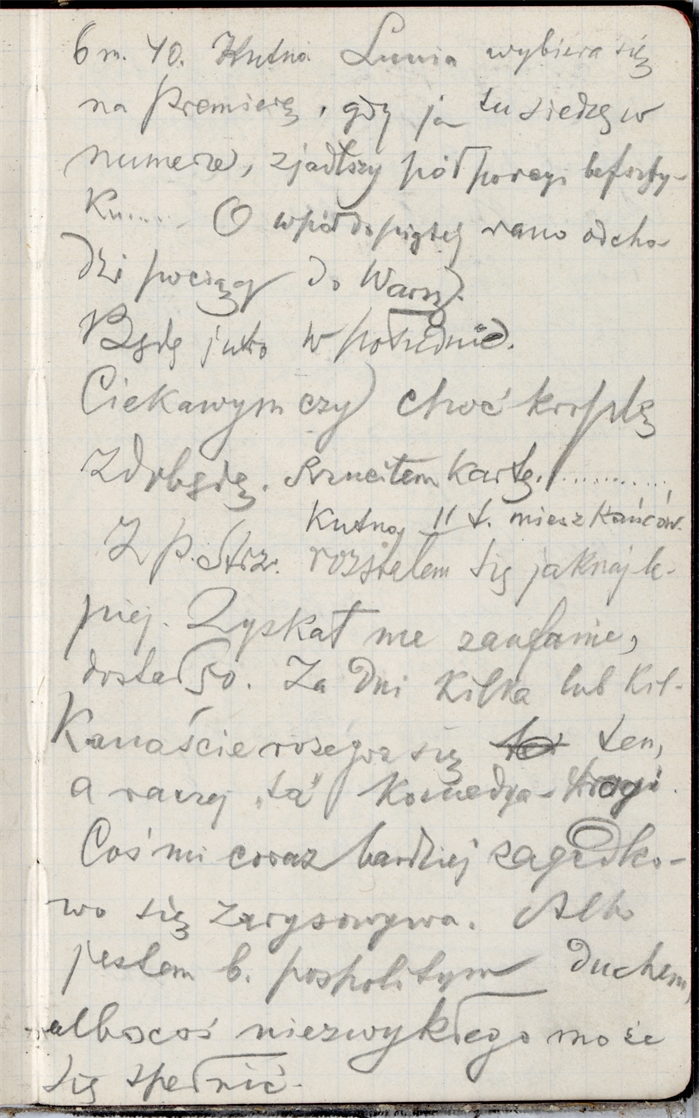 6 m. 40. Kutno Lunia wybiera się
na Premierę, gdy ja tu siedzę w
numerze, zjadłszy pół porcyi befszty-
ku..... O wpół do piątej rano odcho-
dzi pociąg do Warsz.
Będę jutro w południe.
Ciekawym czy choć kroplę
zdobędę. Rzuciłem kartę.!............
Kutno, 11 t. mieszkańców.
Z p. Strz. rozstałem się jaknajle-
piej. Zyskał me zaufanie,
dostał 50. Za dni kilka lub kil-
kanaście rozegra się ten,
a raczej „ta” komedya-tragi.
Coś mi coraz bardziej zagadko-
wo się zarysowywa. Albo
jestem b. pospolitym duchem,
albo coś niezwykłego może
się spełnić.